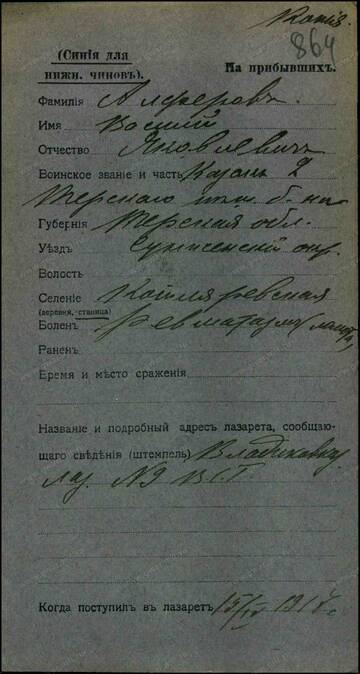 Копія
864
(Синія для
нижн. чиновъ).
На прибывшихъ.
Фамилія Алферовъ.
Имя Василій
Отчество Яковлевичъ
Воинское званіе и часть Казакъ 2
Терскаго б-на
Губернія Терская обл.
Уѣздъ Сунженскій окр.
Волость
Селеніе Котляревская
(деревня, станица)
Болен Ревматизм
Ранен
Время и мѣсто сраженія
Названіе и подробный адресъ лазарета, сообщаю-
щаго свѣдѣнія (штемпель) Владикавказ
лаз. N9 В.С.Г.
Когда поступил въ лазаретъ 15/IV 1917 г.